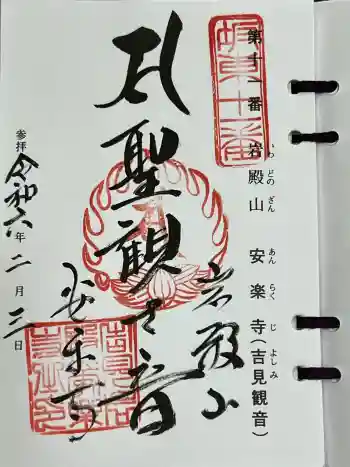 第十一番 岩殿山 安楽寺(吉見観音)
いわ どの ざん あん らく じ よしみ
坂東十一番
岩殿山
聖観世音
安楽寺
参拝 令和六年二月三日